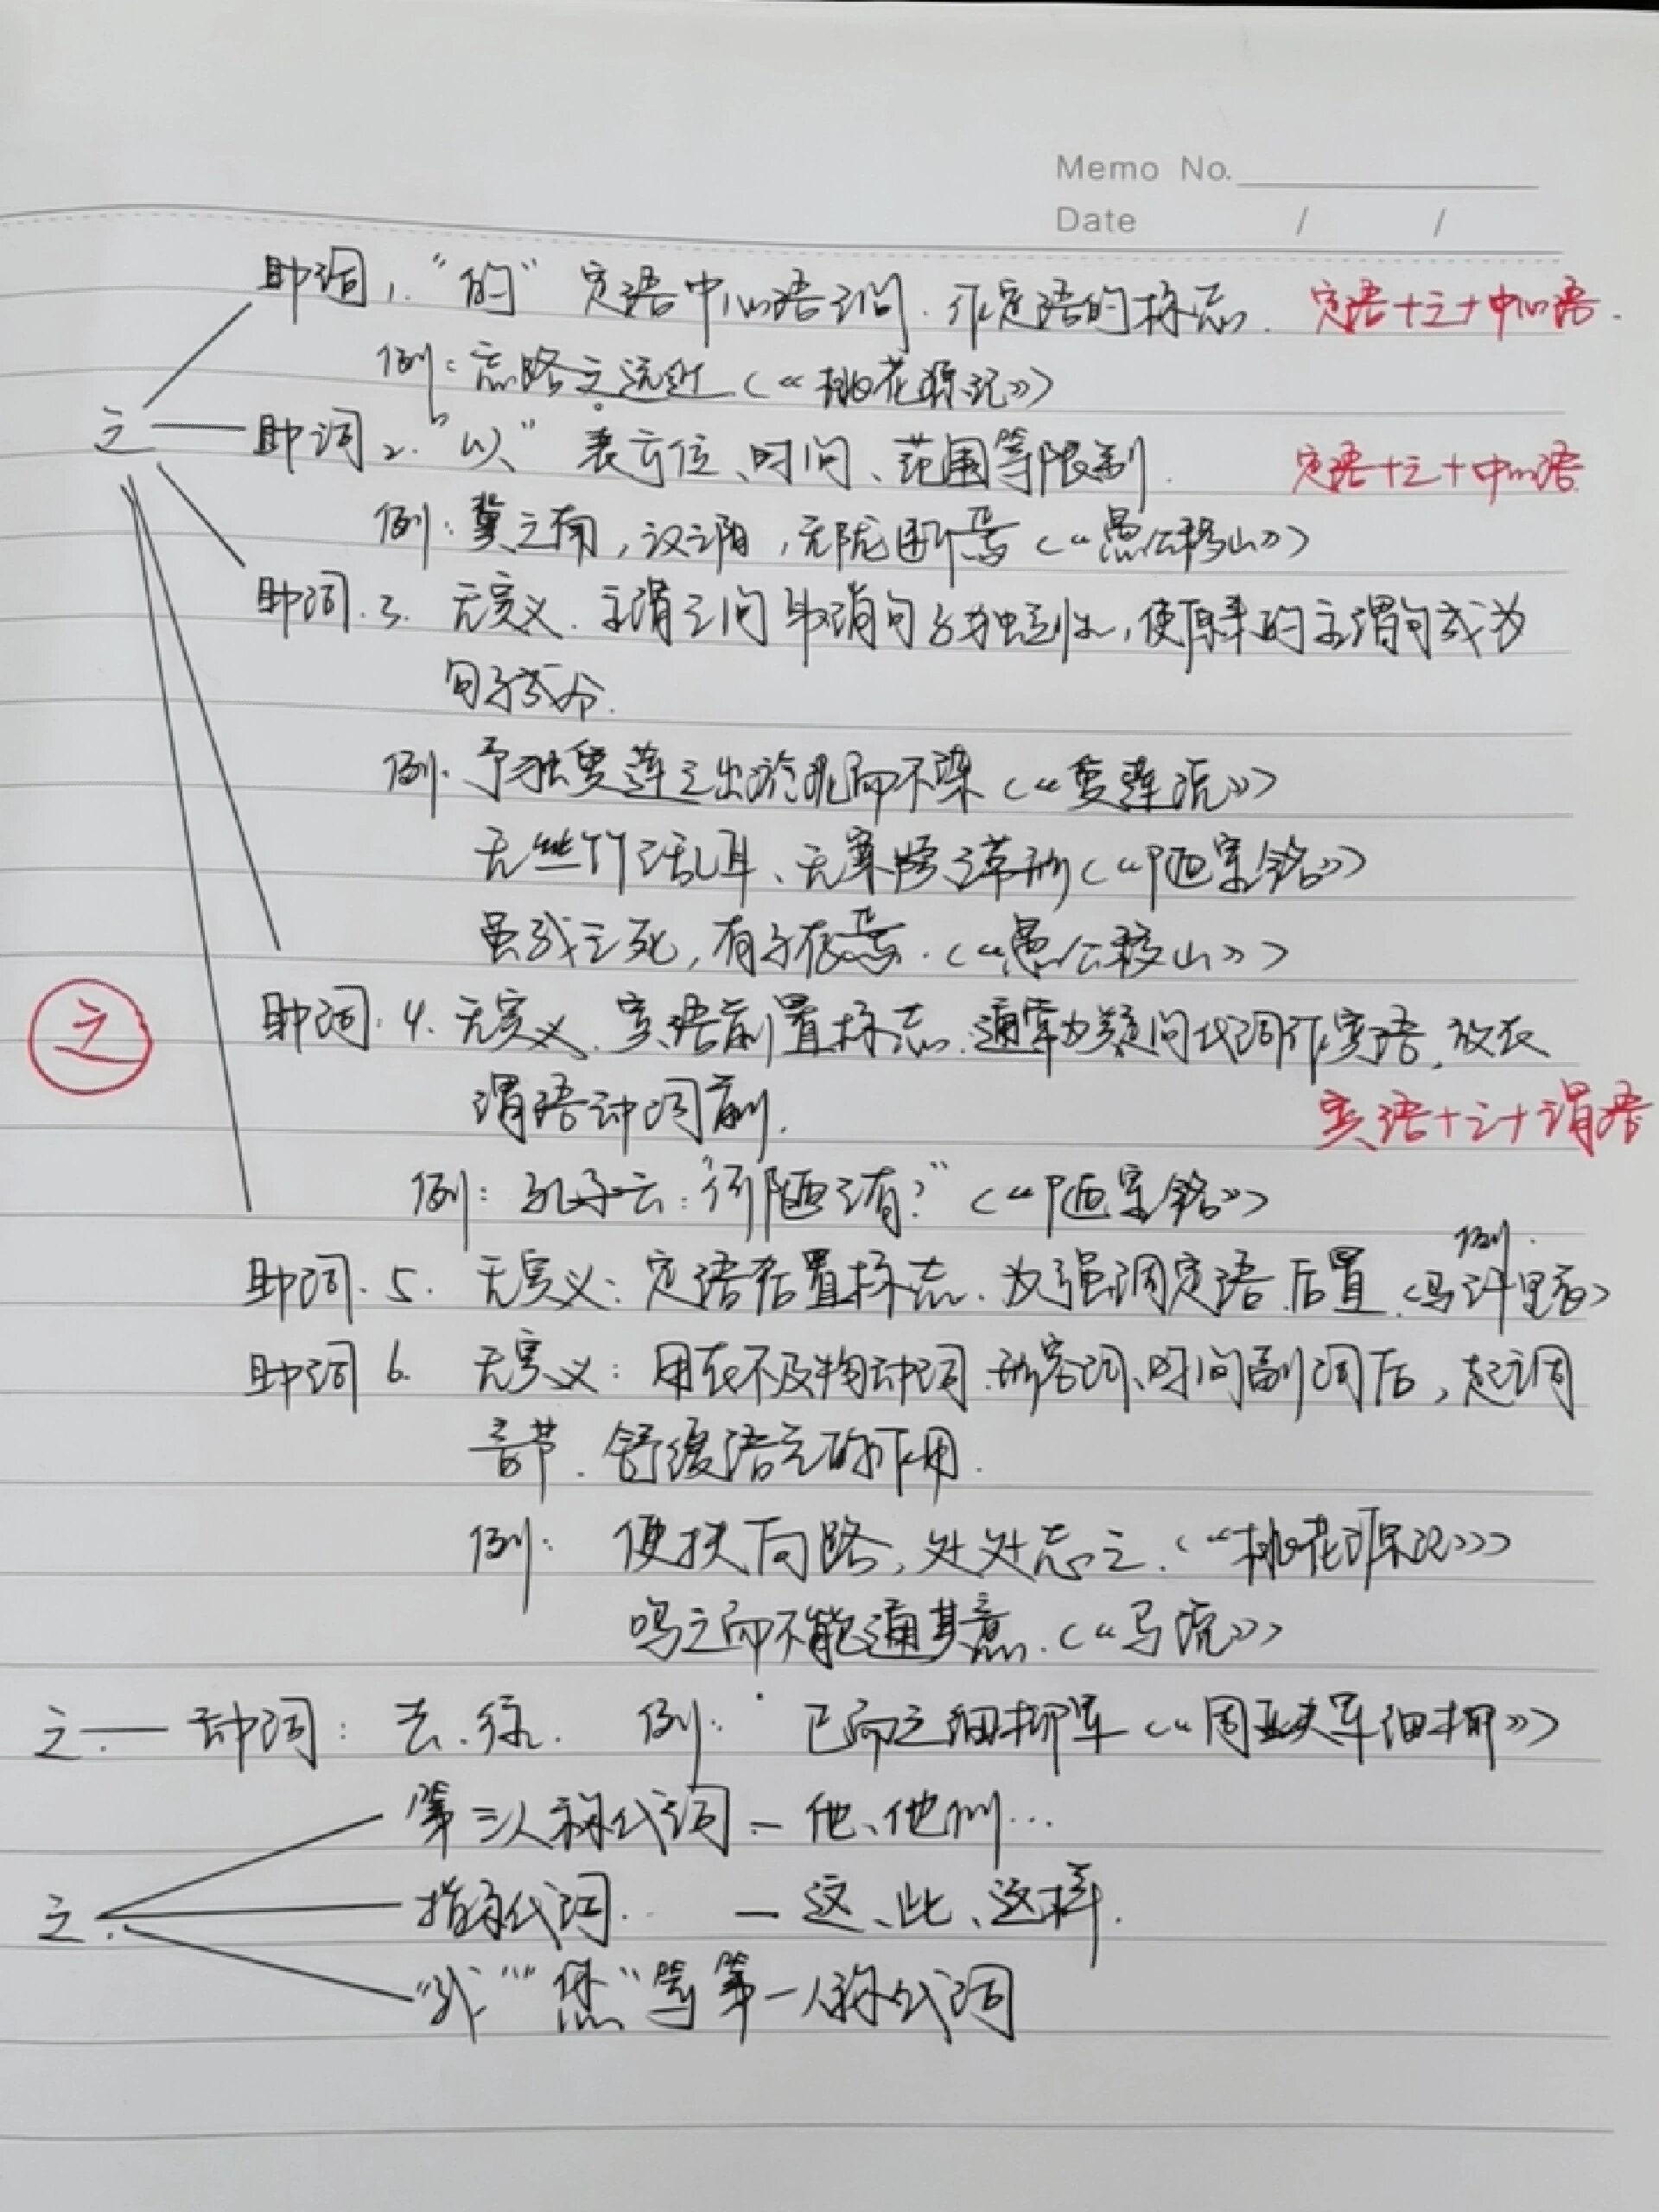 Memo No.
Date / /
助词 1. “的” 定语中心语之间. 作定语的标志. 定语+之+中心语.
例: 忘路之远近 (《桃花源记》)
之
助词 2. “以” 表方位、时间、范围等限制. 定语+之+中心语
例: 冀之南, 汉之阴, 无陇断焉 (《愚公移山》)
助词. 3. 无实义. 主谓之间 取消句子独立性, 使原来的主谓句成为
句子成分.
例. 予独爱莲之出淤泥而不染 (《爱莲说》)
无丝竹之乱耳、无案牍之劳形 (《陋室铭》)
虽我之死, 有子存焉. (《愚公移山》)
之
助词. 4. 无实义. 宾语前置标志. 通常为疑问代词作宾语, 放在
谓语动词前. 宾语+之+谓语
例: 孔子云: “何陋之有?” (《陋室铭》)
例.
助词. 5. 无实义: 定语后置标志. 为强调定语.后置. (马之千里者)
助词 6. 无实义: 用在不及物动词.形容词、时间副词后, 起调
音节. 舒缓语气的作用.
例: 便扶向路, 处处志之. (《桃花源记》)
鸣之而不能通其意. (《马说》)
之 — 动词: 去.往. 例: 已而之细柳军 (《周亚夫军细柳》)
第三人称代词 — 他、他们…
之. 指示代词. — 这、此、这样.
“我” “您” 等 第一人称代词